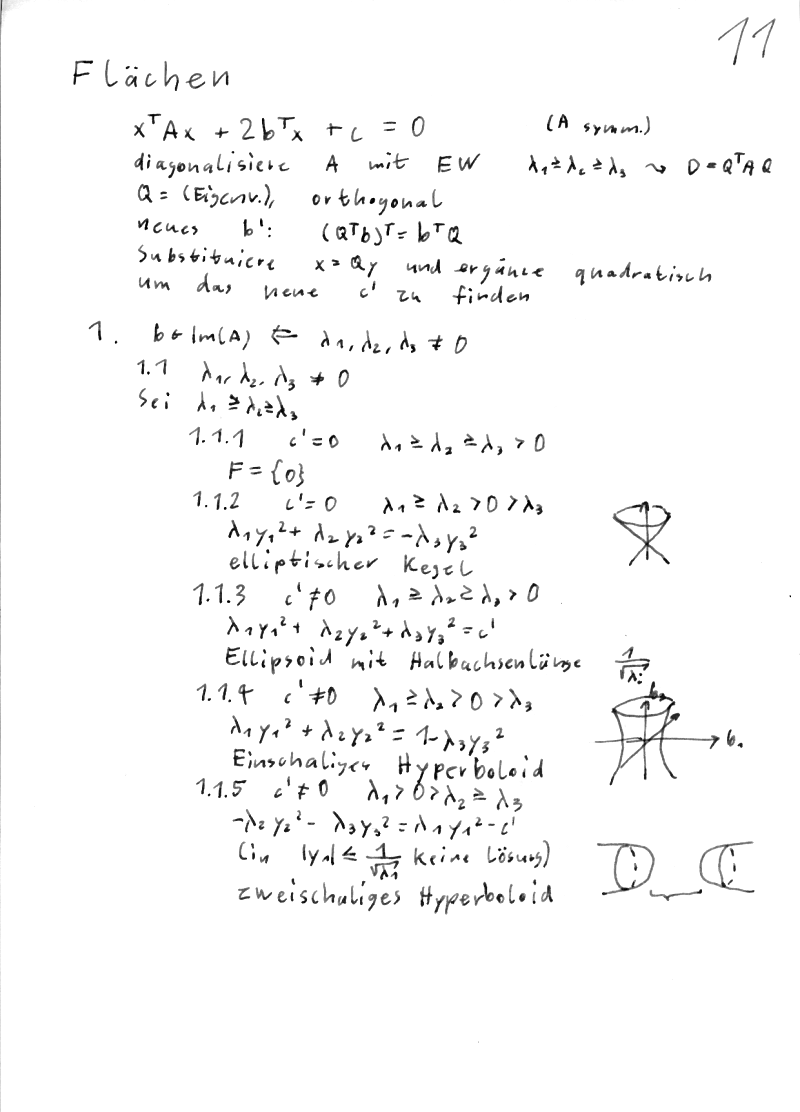 11
Flächen
xᵀAx + 2bᵀx + c = 0 (A symm.)
diagonalisiere A mit EW λ₁ ≥ λ₂ ≥ λ₃ ⤳ D = QᵀAQ
Q = (Eigenv.), orthogonal
neues b': (Qᵀb)ᵀ = bᵀQ
Substituiere x = Qy und ergänze quadratisch
um das neue c' zu finden
1. b ∈ Im(A) ⇐ λ₁, λ₂, λ₃ ≠ 0
1.1 λ₁, λ₂, λ₃ ≠ 0
Sei λ₁ ≥ λ₂ ≥ λ₃
1.1.1 c' = 0 λ₁ ≥ λ₂ ≥ λ₃ > 0
F = {0}
1.1.2 c' = 0 λ₁ ≥ λ₂ > 0 > λ₃
λ₁y₁² + λ₂y₂² = -λ₃y₃²
elliptischer Kegel
1.1.3 c' ≠ 0 λ₁ ≥ λ₂ ≥ λ₃ > 0
λ₁y₁² + λ₂y₂² + λ₃y₃² = c'
Ellipsoid mit Halbachsenlänge 1/√λᵢ
1.1.4 c' ≠ 0 λ₁ ≥ λ₂ > 0 > λ₃
λ₁y₁² + λ₂y₂² = 1-λ₃y₃²
Einschaliges Hyperboloid
1.1.5 c' ≠ 0 λ₁ > 0 > λ₂ ≥ λ₃
-λ₂y₂² - λ₃y₃² = λ₁y₁² - c'
(in |y₁| ≤ 1/√λ₁ keine Lösung)
zweischaliges Hyperboloid